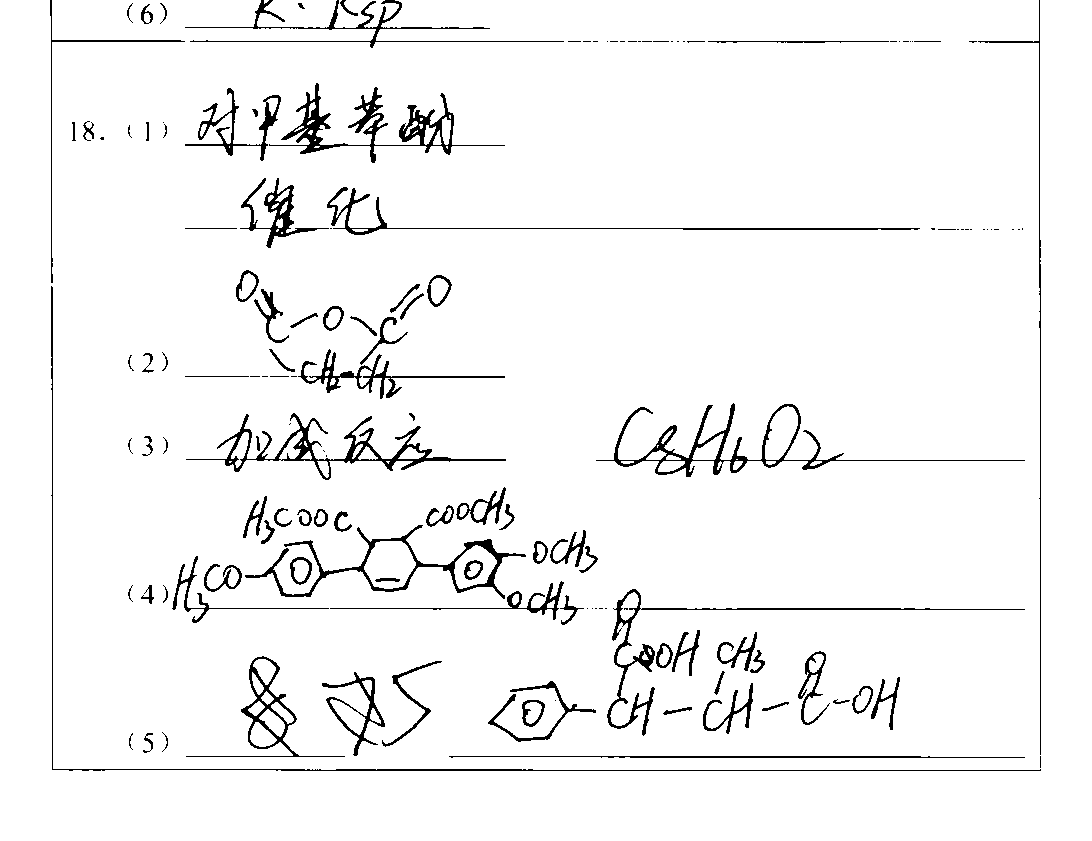 (6) K·Ksp
18. (1) 对甲基苯酚
催化
(2) O=C-O-C=O CH2-CH2
(3) 加成反应 C8H6O2
(4) H3CO H3COOC COOCH3 OCH3 OCH3
(5) 5 O COOH CH3 O CH-CH-C-OH